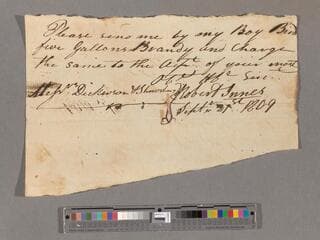 Please send me by my Boy Ben
five Gallons Brandy and Charge
the same to the Acpt. of your most
Obt. Hble Serv.
Messrs Dickinson & Shrewsbury Robert Innes
Septr. 21st 1809